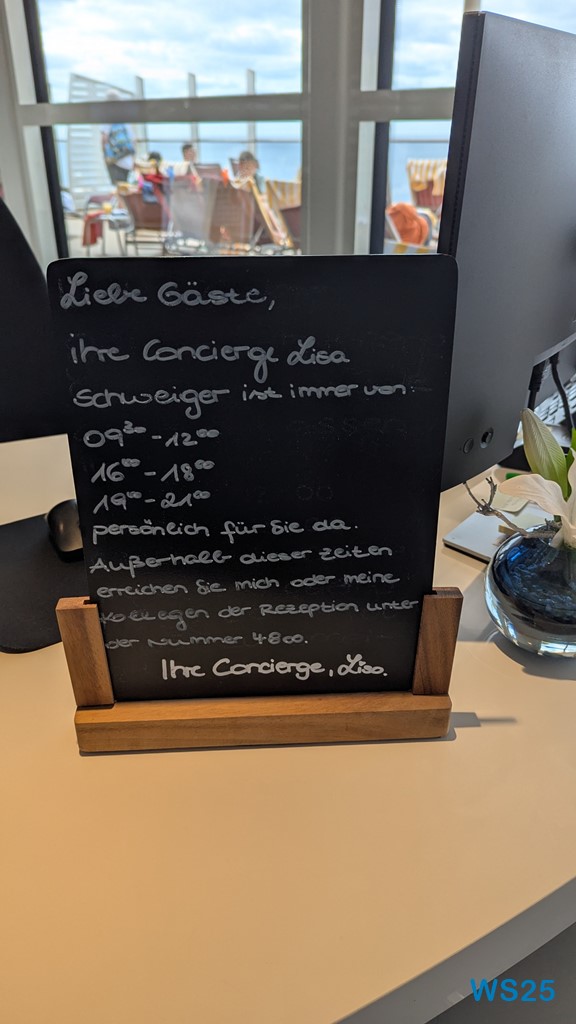 Liebe Gäste,
ihre Concierge Lisa
Schweiger ist immer von:
09³⁰ - 12⁰⁰
16⁰⁰ - 18⁰⁰
19⁰⁰ - 21⁰⁰
persönlich für Sie da.
Außerhalb dieser Zeiten
erreichen Sie mich oder meine
Kollegen der Rezeption unter
der Nummer 4800.
Ihre Concierge, Lisa.
WS25